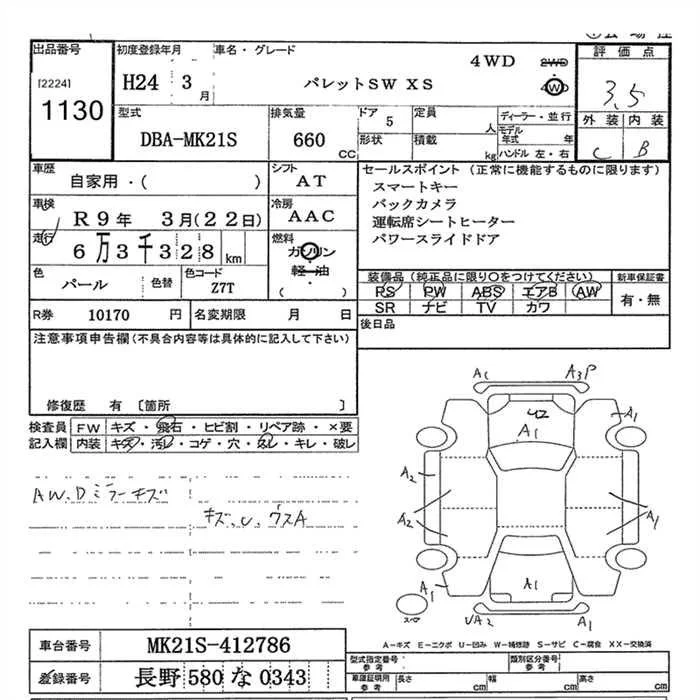 出品番号 初度登録年月 車名・グレード 4WD 2WD 評価点
[2224] H24 3月 パレットSW XS 4WD 3.5
1130 型式 排気量 ドア 5 定員 人 ディーラー・並行 外装 内装
DBA-MK21S 660 CC 形状 積載 kg モデル年式 年 ハンドル 左・右 C B
車歴 自家用・( ) シフト AT セールスポイント (正常に機能するものに限ります)
スマートキー
車検 R9年 3月(22日) 冷房 AAC バックカメラ
運転席シートヒーター
走行 6万3千328km 燃料 ガソリン パワースライドドア
軽油
( )
色 パール 色替 色コード Z7T 装備品(純正品に限り○をつけてください) 新車保証書
PS PW ABS エアB AW 有・無
R券 10170円 名変期限 月 日 SR ナビ TV カワ
注意事項申告欄(不具合内容等は具体的に記入して下さい) 後日品
修復歴 有 [箇所 ]
検査員 FW キズ・飛石・ヒビ割・リペア跡・×要
記入欄 内装 キズ・汚レ・コゲ・穴・スレ・キレ・破レ
AW.Dミラーキズ
キズ、U、ウスA
A1 A3P
U2 A1
A1
A2
A2 A1
A1 A1
スペ UA2 A1
A-キズ E-エクボ U-凹み W-補修跡 S-サビ C-腐食 XX-交換済
車台番号 MK21S-412786 型式指定番号 参考 類別区分番号 参考
登録番号 長野 580 な 0343 車庫証明用 参考 長さ cm 幅 cm 高さ cm